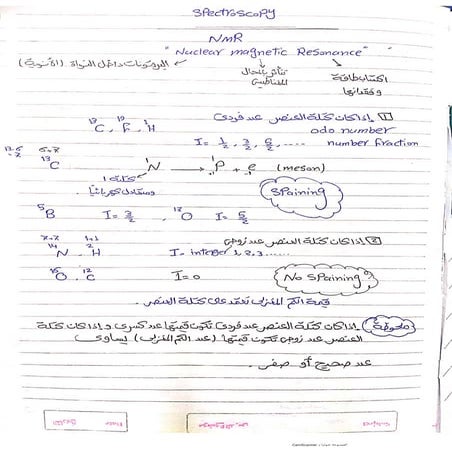 SPectroscoPy
NMR
"Nuclear magnetic Resonance"
البروتونات داخل النواة (الأنوية)
تتأثر بالمجال المغناطيسي
اكتساب طاقة وفقدانها
1 إذا كان كتلة العنصر عدد فردي
odo number
¹³C, ¹⁹F, ¹H I = 1/2, 3/2, 5/2, ..... number fraction
¹³C ¹N → ¹P + e (meson)
كتلة 1
SPaining
⁵B I = 3/2, ¹⁷O I = 5/2
2 إذا كان كتلة العنصر عدد زوجي
7+7 1+1
¹⁴N . H I = integer 1, 2, 3 ......
¹⁶O . ¹²C I = 0 No SPaining
قيمة الكم المغزلي تعتمد على كتلة العنصر.
ملحوظة إذا كان كتلة العنصر عدد فردي تكون قيمتها عدد كسري و إذا كان كتلة
العنصر عدد زوجي تكون قيمتها (عدد الكم المغزلي) يساوي
عدد صحيح أو صفر.